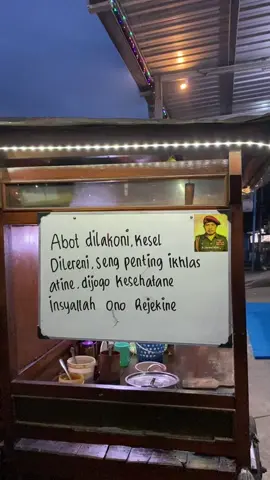 Abot dilakoni, kesel
Dilereni, seng penting ikhlas
atine, dijogo kesehatane
insyallah Ono Rejekine